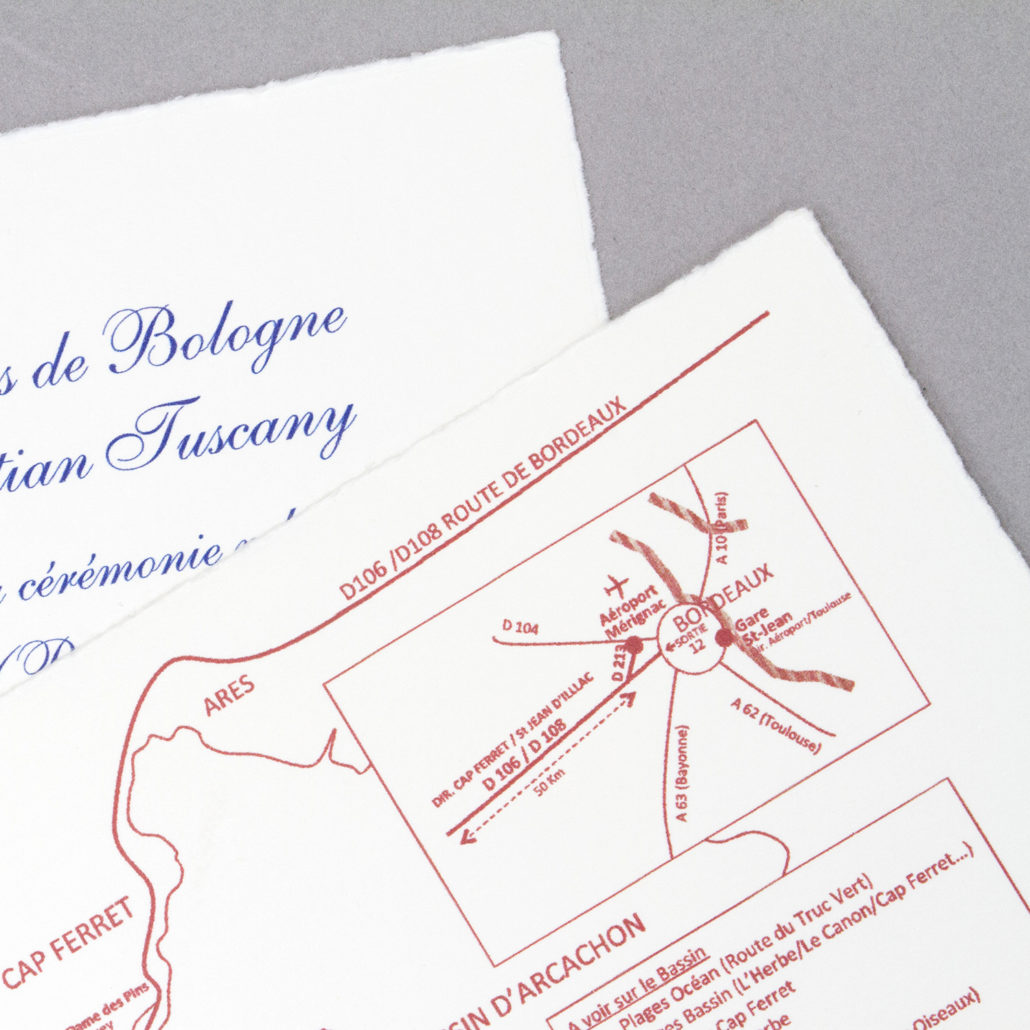 de Bologne
Tuscany
cérémonie
D106 /D108 ROUTE DE BORDEAUX
A 10 (Paris)
BORDEAUX
Aéroport
Mérignac
Gare
St-Jean
Dir. Aéroport/Toulouse
SORTIE
12
D 104
D 213
ARES
DIR. CAP FERRET / St JEAN D'ILLLAC
D 106 / D 108
50 Km
A 62 (Toulouse)
A 63 (Bayonne)
CAP FERRET
Dame des Pins
D'ARCACHON
A voir sur le Bassin
Plages Océan (Route du Truc Vert)
Bassin (L'Herbe/Le Canon/Cap Ferret...)
Cap Ferret
Oiseaux)